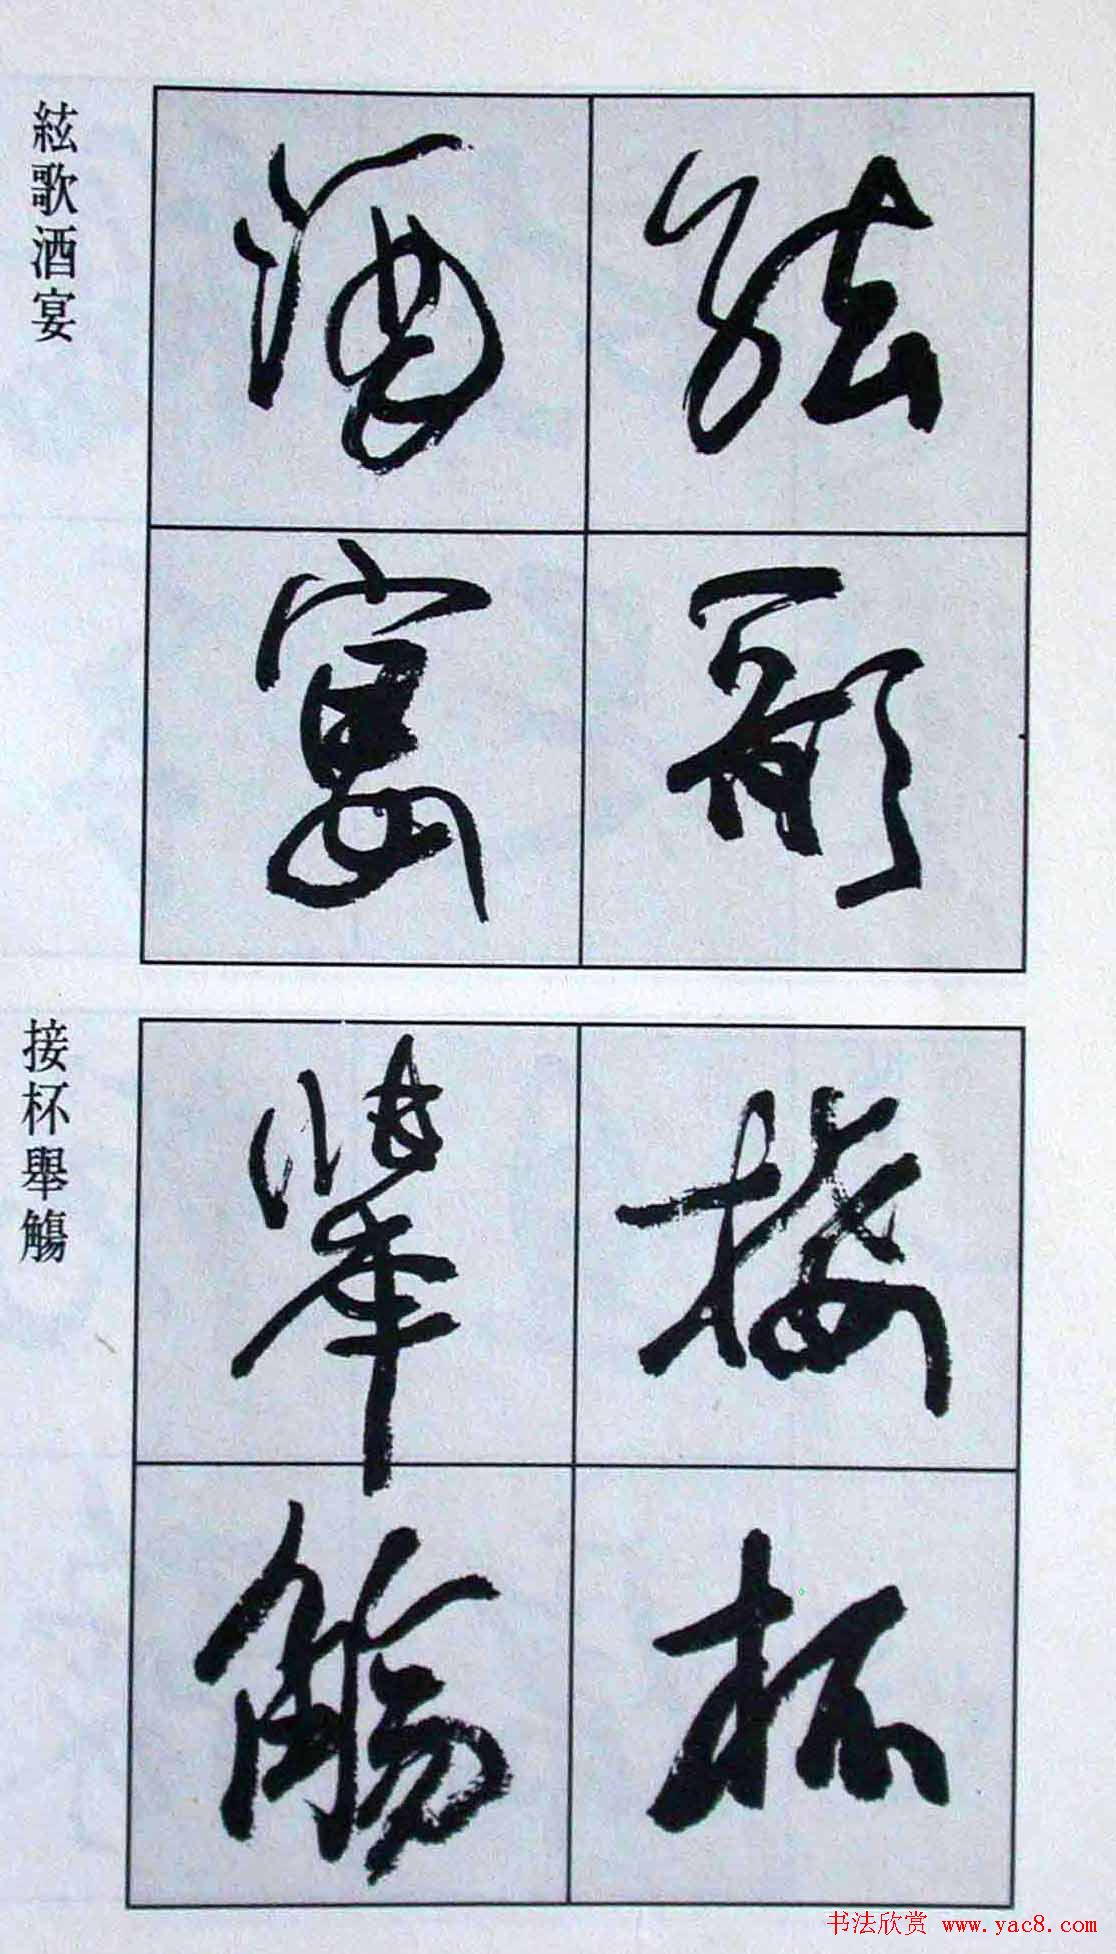 絃歌
酒宴
絃歌酒宴
接杯
舉觴
接杯舉觴
书法欣赏 www.yac8.com